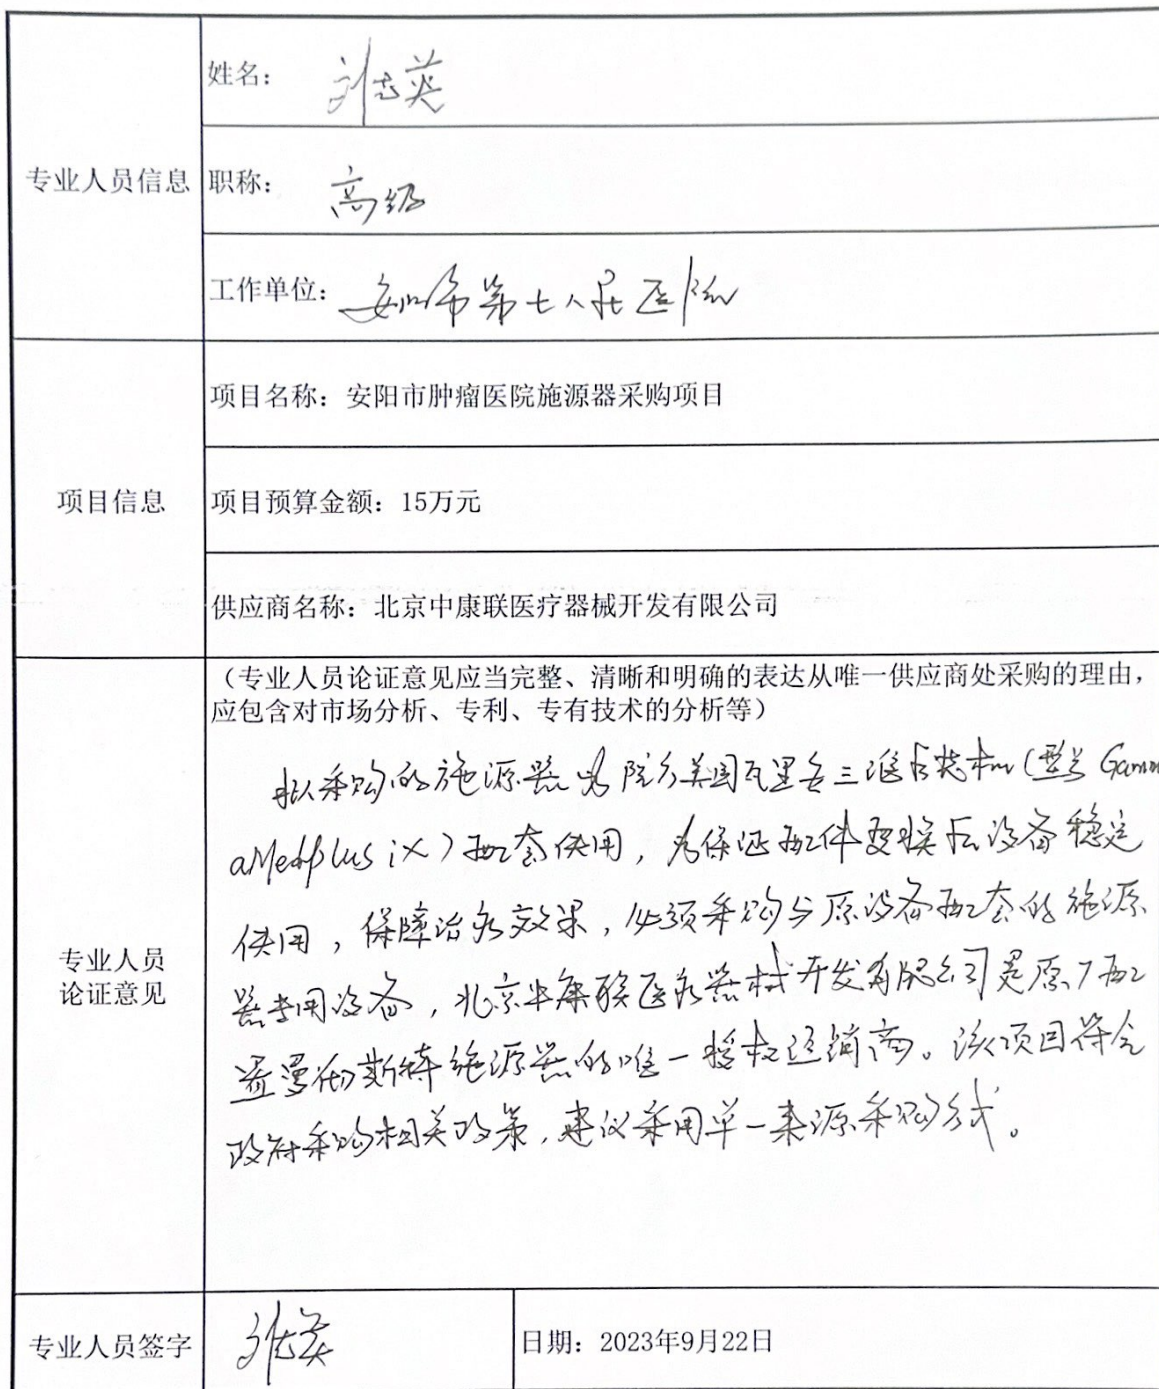 姓名：刘志英
专业人员信息
职称：高级
工作单位：安阳市第七人民医院
项目名称：安阳市肿瘤医院施源器采购项目
项目信息
项目预算金额：15万元
供应商名称：北京中康联医疗器械开发有限公司
（专业人员论证意见应当完整、清晰和明确的表达从唯一供应商处采购的理由，
应包含对市场分析、专利、专有技术的分析等）
拟采购的施源器为院方美国瓦里安三维后装机（型号Gamm
aMedplus iX）配套使用，为保证配件更换后设备稳定
使用，保障治疗效果，必须采购与原设备配套的施源
器专用设备，北京中康联医疗器械开发有限公司是原厂配
套曼彻斯特施源器的唯一授权经销商。该项目符合
政府采购相关政策，建议采用单一来源采购方式。
专业人员
论证意见
专业人员签字
刘志英
日期：2023年9月22日